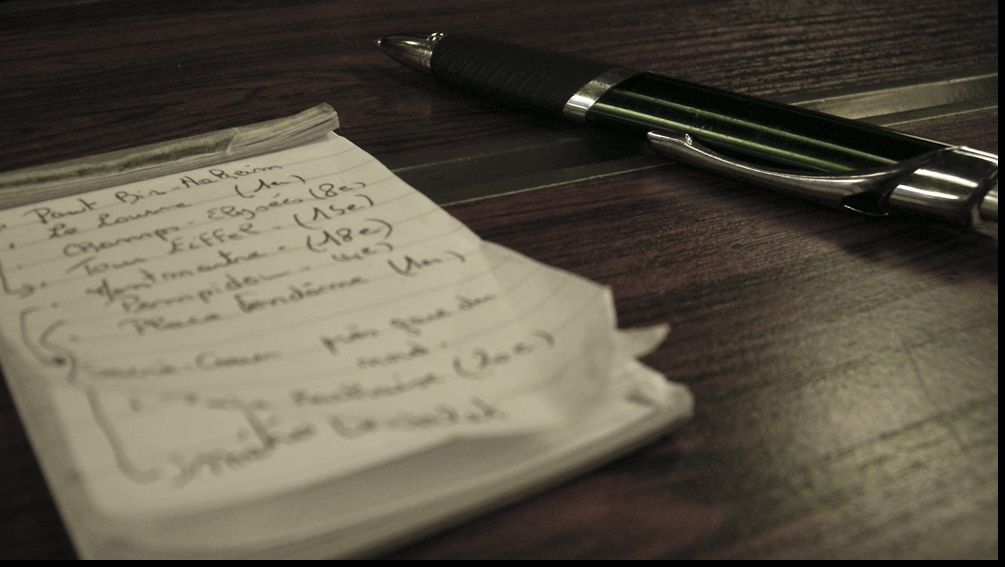 Pont Bir-Hakeim
Le Louvre (1er)
Champs-Elysées (8e)
Tour Eiffel - (15e)
Montmartre - (18e)
Pompidou - 4e)
Place Vendôme (1er)
Sacré-Coeur près gare du
nord.
(20e)